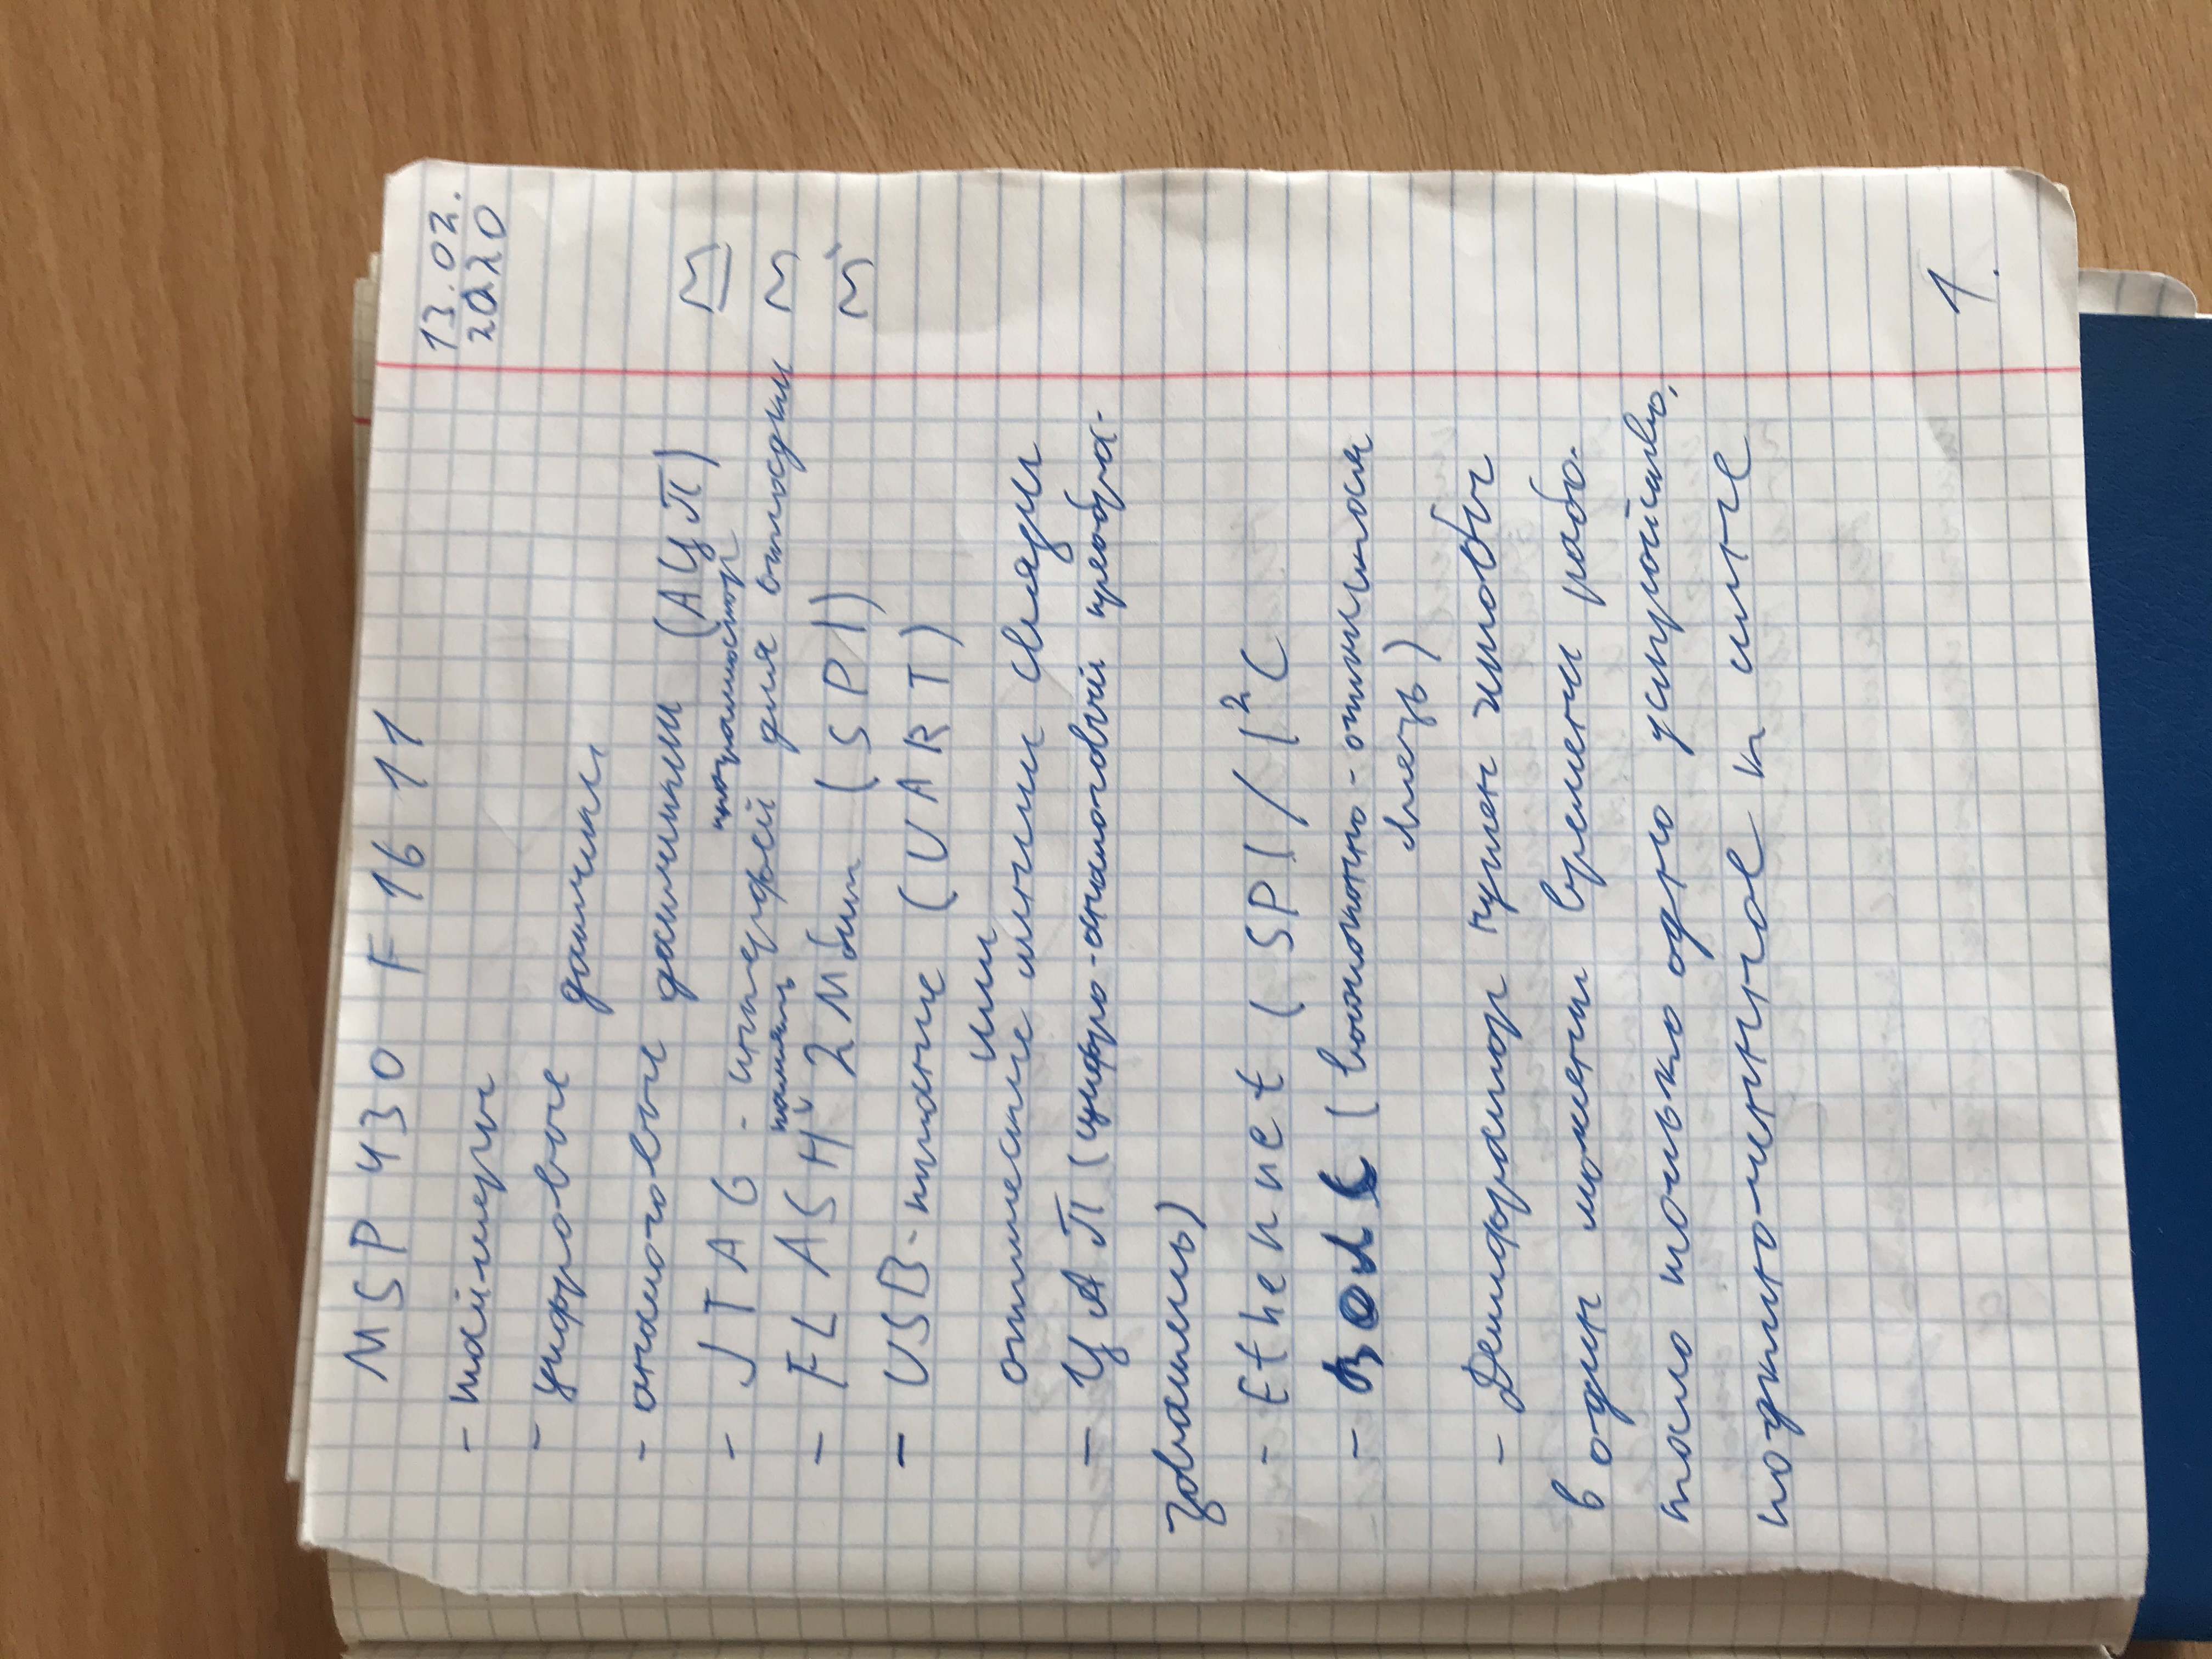 MSP 430 F 16 11
13.02.
2020
- таймеры
- цифровые датчики
- аналоговые датчики (АЦП)
программатор
- JTAG - интерфей для отладки
память
- FLASH 2Мбит (SPI)
- USB-питание (UART)
или
оптические линии связи
- ЦАП (цифро-аналоговый преобра-
зователь)
- Ethernet ( SPI / I²C
- ВОЛС (волоконно-оптическая
связь)
- Дешифратор нужен чтобы
в один момент времени рабо-
тало только одно устройство,
подключенное к шине
1.